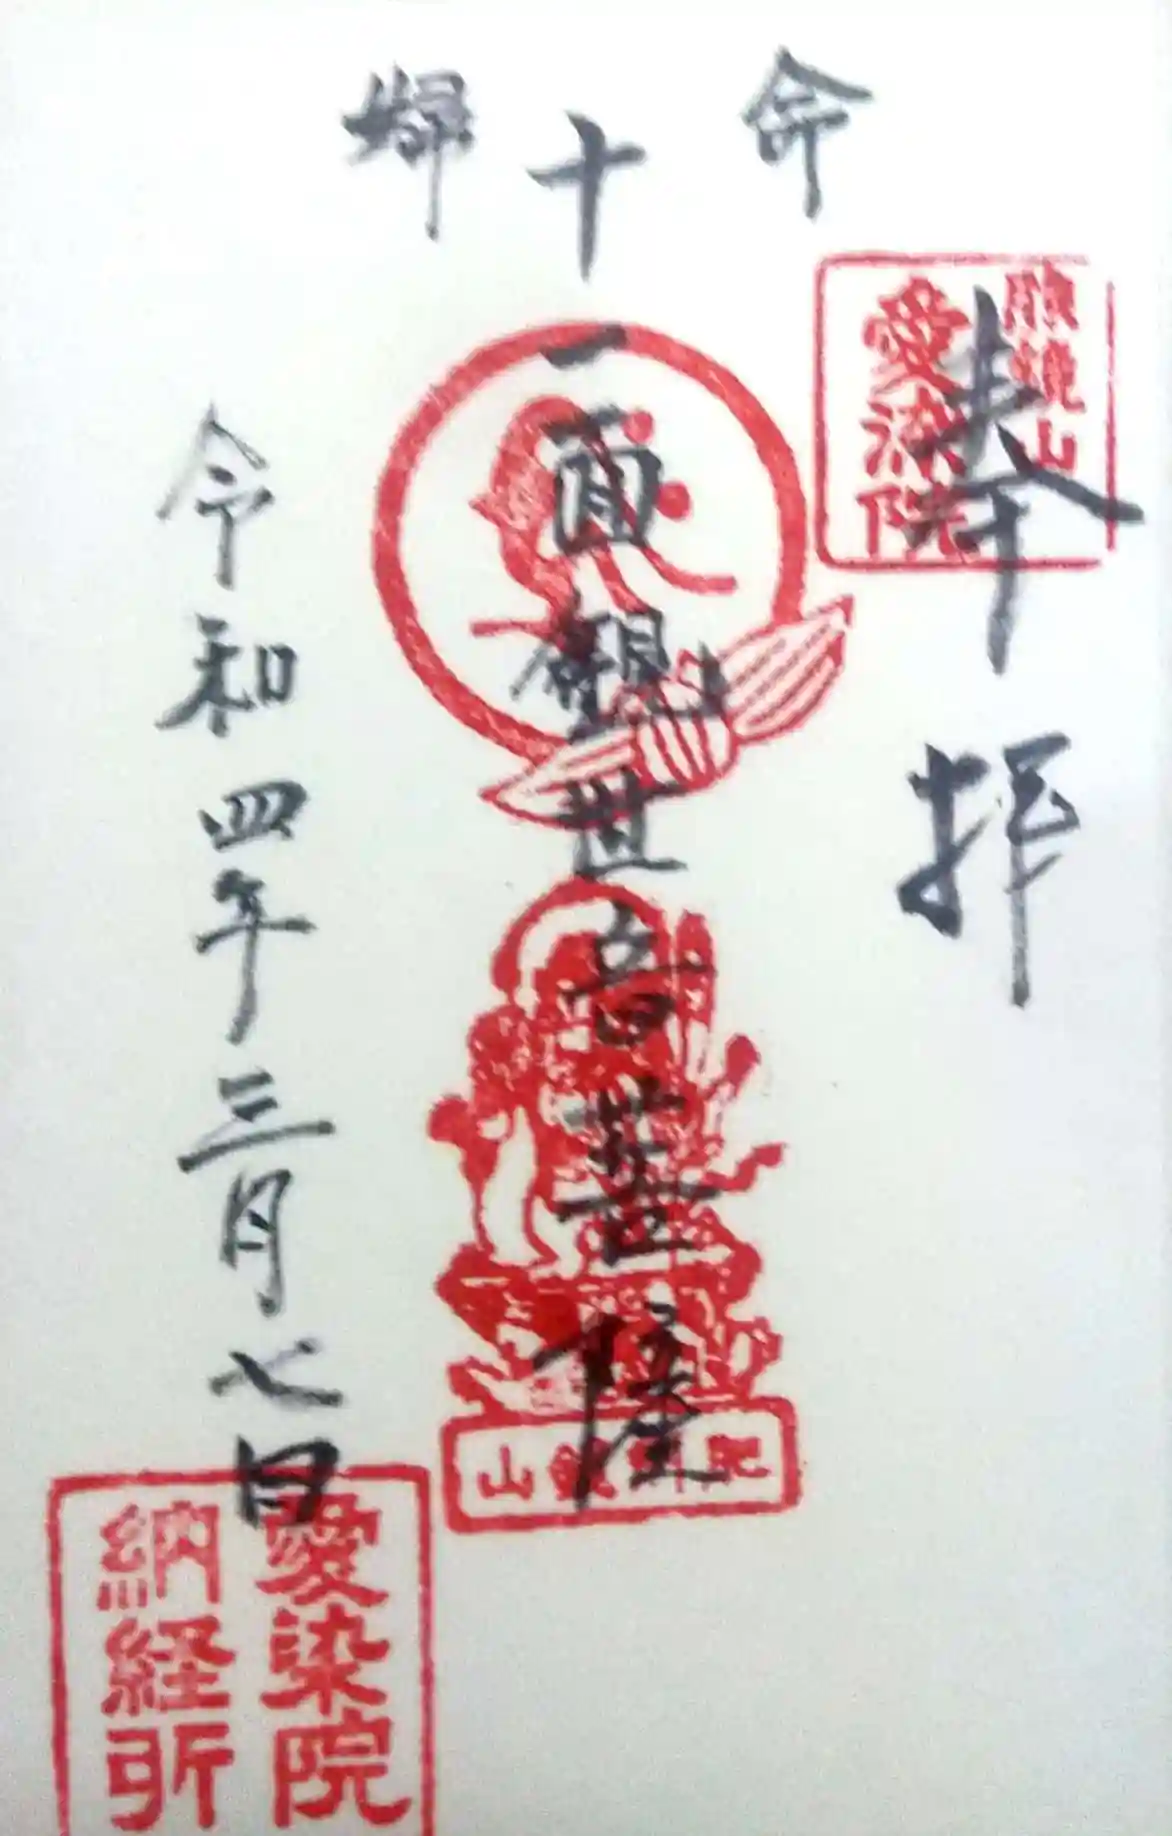 愛染院
奉拝
命
十一面観世音菩薩
帰
令和四年三月七日
愛染院
納経所